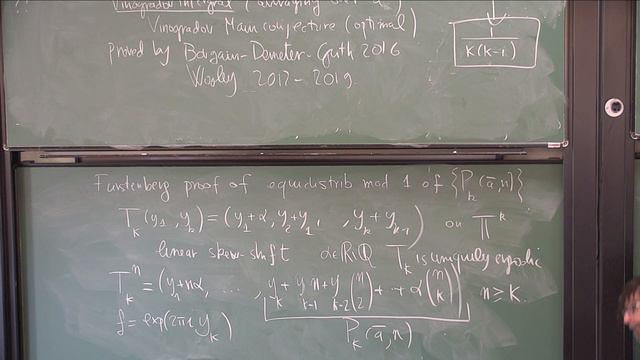 Vinogradov integral (averaging over
Vinogradov Main conjecture (optimal)
proved by Bourgain-Demeter-Guth 2016
Wooley 2017-2019.
1/k(k-1)
Furstenberg proof of equidistrib mod 1 of {P_k(ā,n)}
T_k(y_1, y_k) = (y_1+α, y_2+y_1, , y_k+y_{k-1}) on 𝕋^k
linear skew-shift α∈ℝ\ℚ T_k is uniquely ergodic
T_k^n = (y_1+nα, ..., y_k+y_{k-1}n+y_{k-2}(n 2)+...+α(n k)) n≥k.
f=exp(2πi y_k) P_k(ā,n)